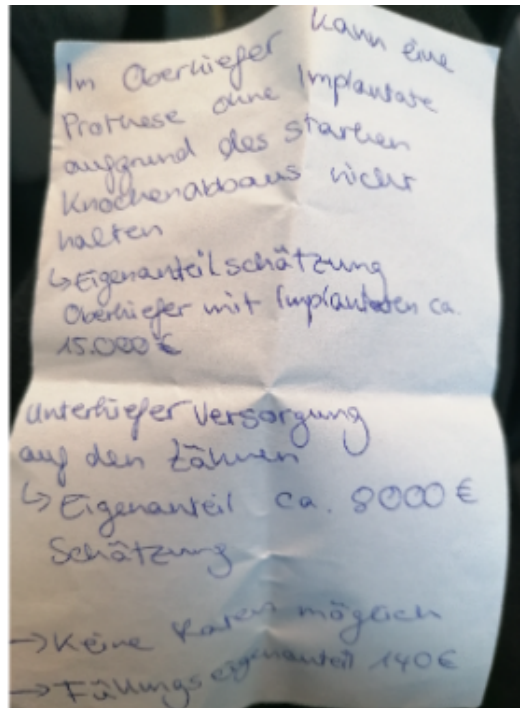 Im Oberkiefer kann eine
Prothese ohne Implantate
aufgrund des starken
Knochenabbaus nicht
halten
↳ Eigenanteilschätzung
Oberkiefer mit Implantaten ca.
15.000 €
Unterkiefer Versorgung
auf den Zähnen
↳ Eigenanteil ca. 8000 €
Schätzung
→ Keine Raten möglich
→ Füllungseigenanteil 140 €